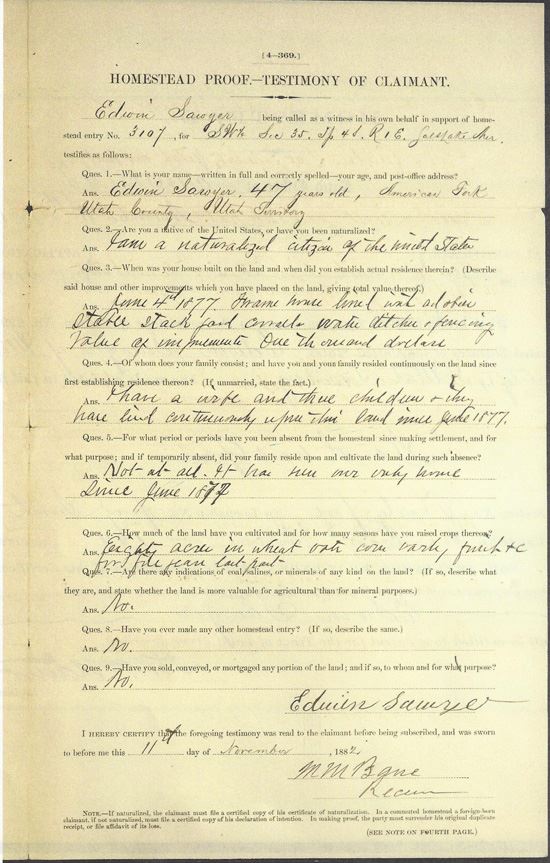 [4—369.]
HOMESTEAD PROOF.—TESTIMONY OF CLAIMANT.
Edwin Sawyer being called as a witness in his own behalf in support of home-
stead entry No. 3107, for S.W¼ Sec 35. Tp 4 S. R 1 E. Salt Lake Mer.
testifies as follows:
Ques. 1.—What is your name—written in full and correctly spelled—your age, and post-office address?
Ans. Edwin Sawyer. 47 years old, American Fork
Utah County, Utah Territory
Ques. 2.—Are you a native of the United States, or have you been naturalized?
Ans. I am a naturalized citizen of the United States
Ques. 3.—When was your house built on the land and when did you establish actual residence therein? (Describe
said house and other improvements which you have placed on the land, giving total value thereof.)
Ans. June 4th 1877. Frame house lined with adobies
Stable stack yard corrals water ditches & fencing
Value of improvements One thousand dollars
Ques. 4.—Of whom does your family consist; and have you and your family resided continuously on the land since
first establishing residence thereon? (If unmarried, state the fact.)
Ans. I have a wife and three children & they
have lived continuously upon this land since June 1877.
Ques. 5.—For what period or periods have you been absent from the homestead since making settlement, and for
what purpose; and if temporarily absent, did your family reside upon and cultivate the land during such absence?
Ans. Not at all. It has been our only home
Since June 1877
Ques. 6.—How much of the land have you cultivated and for how many seasons have you raised crops thereon?
Ans. Eighty acres in wheat oats corn barley fruit &c
for five years last past
Ques. 7.—Are there any indications of coal, salines, or minerals of any kind on the land? (If so, describe what
they are, and state whether the land is more valuable for agricultural than for mineral purposes.)
Ans. No.
Ques. 8.—Have you ever made any other homestead entry? (If so, describe the same.)
Ans. No.
Ques. 9.—Have you sold, conveyed, or mortgaged any portion of the land; and if so, to whom and for what purpose?
Ans. No.
Edwin Sawyer
I HEREBY CERTIFY that the foregoing testimony was read to the claimant before being subscribed, and was sworn
to before me this 11th day of November, 1882.
M M Bane
Receiver
NOTE.—If naturalized, the claimant must file a certified copy of his certificate of naturalization. In a commuted homestead a foreign-born
claimant, if not naturalized, must file a certified copy of his declaration of intention. In making proof, the party must surrender his original duplicate
receipt, or file affidavit of its loss.
(SEE NOTE ON FOURTH PAGE.)